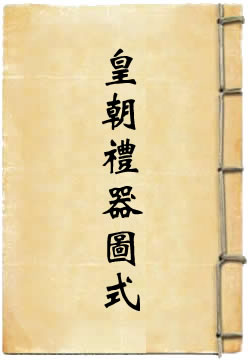 皇朝禮器圖式